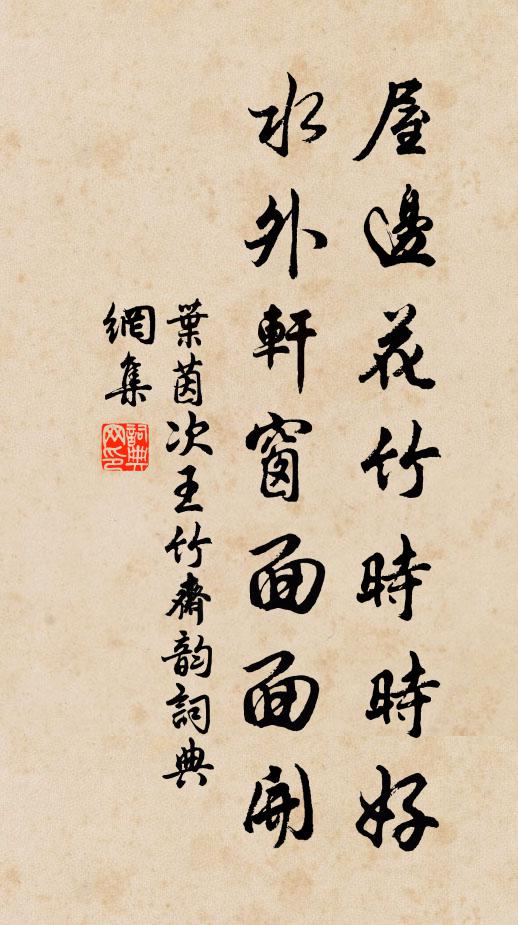 屋邊花竹時時好
水外軒窗面面開
葉茵次王竹齋韵詞典
網集
詞典網印